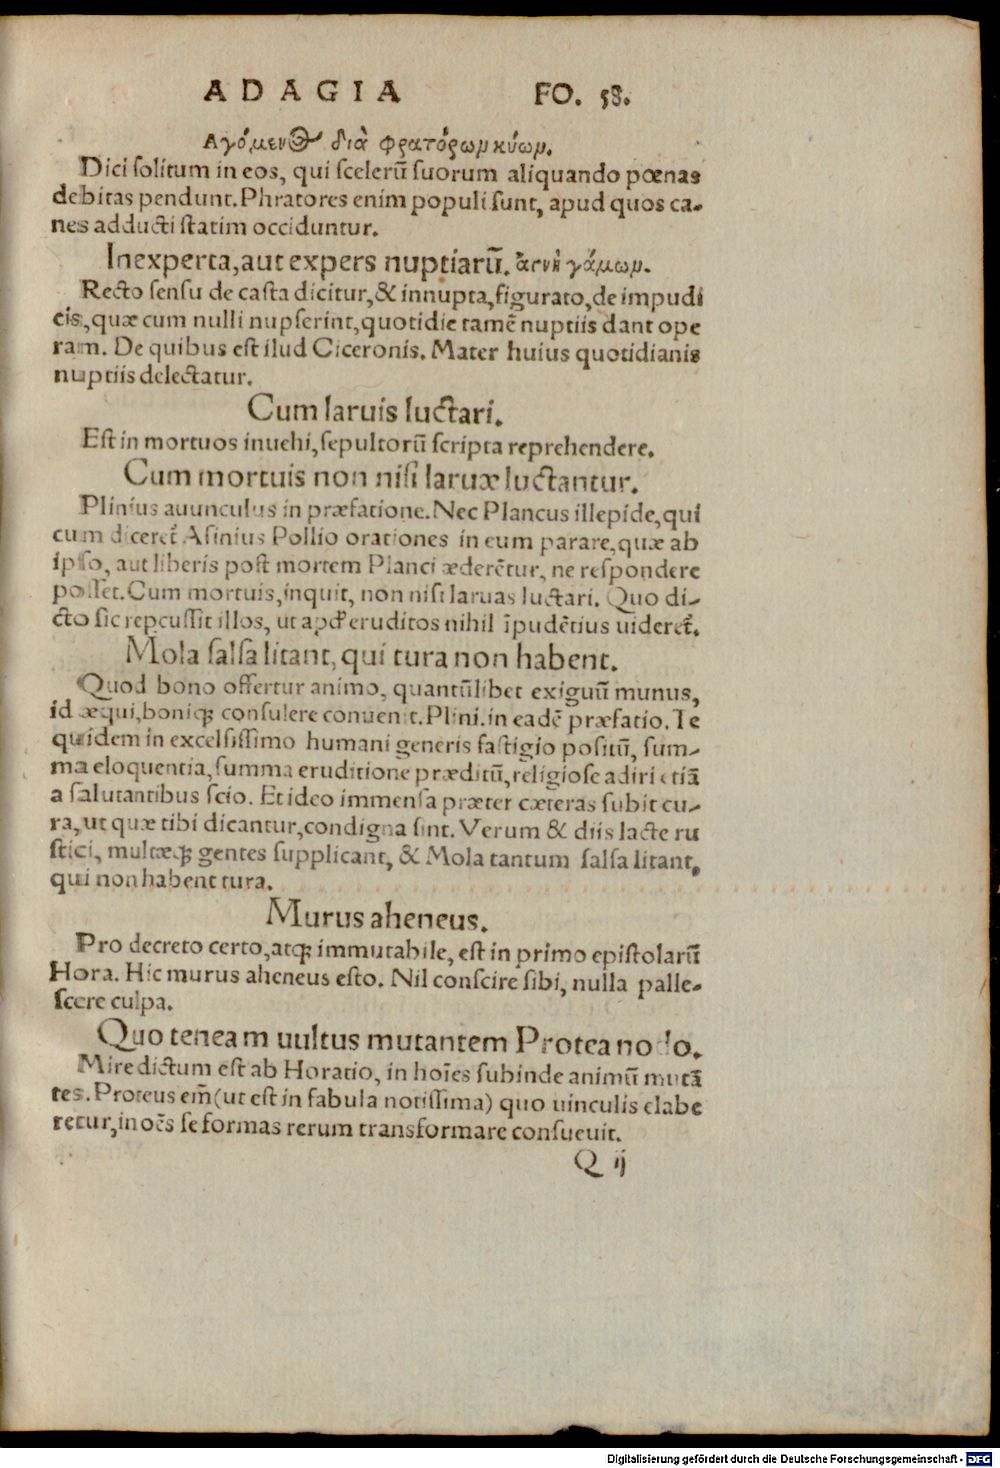 ADAGIA FO. 58.
Αγόμενος διὰ φρατόρων κύων.
Dici solitum in eos, qui scelerũ suorum aliquando pœnas
debitas pendunt. Phratores enim populi sunt, apud quos ca-
nes adducti statim occiduntur.
Inexperta, aut expers nuptiarũ. γάμων.
Recto sensu de casta dicitur, & innupta, figurato, de impudi
cis, quæ cum nulli nupserint, quotidie tamẽ nuptiis dant ope
ram. De quibus est ilud Ciceronis. Mater huius quotidianis
nuptiis delectatur.
Cum laruis luctari.
Est in mortuos inuehi, sepultorũ scripta reprehendere.
Cum mortuis non nisi laruæ luctantur.
Plinius auunculus in præfatione. Nec Plancus illepide, qui
cum diceret̃ Asinius Pollio orationes in eum parare, quæ ab
ipso, aut liberis post mortem Planci æderẽtur, ne respondere
posset. Cum mortuis, inquit, non nisi laruas luctari. Quo di-
cto sic repcussit illos, ut apđ eruditos nihil ĩpudẽtius uideret̃.
Mola salsa litant, qui tura non habent.
Quod bono offertur animo, quantũlibet exiguũ munus,
id æqui, boniqꝫ consulere conuenit. Plini. in eadẽ præfatio. Te
quidem in excelsissimo humani generis fastigio positũ, sum-
ma eloquentia, summa eruditione præditũ, religiose adiri etiã
a salutantibus scio. Et ideo immensa præter cæteras subit cu-
ra, ut quæ tibi dicantur, condigna sint. Verum & diis lacte ru
stici, multæqꝫ gentes supplicant, & Mola tantum salsa litant,
qui non habent tura.
Murus aheneus.
Pro decreto certo, atqꝫ immutabile, est in primo epistolarũ
Hora. Hic murus aheneus esto. Nil conscire sibi, nulla palle-
scere culpa.
Quo teneam uultus mutantem Protea nodo.
Mire dictum est ab Horatio, in hoĩes subinde animũ mutã
tes. Proteus em̃ (ut est in fabula notissima) quo uinculis elabe
retur, in oẽs se formas rerum transformare consueuit.
Q ij
Digitalisierung gefördert durch die Deutsche Forschungsgemeinschaft - DFG